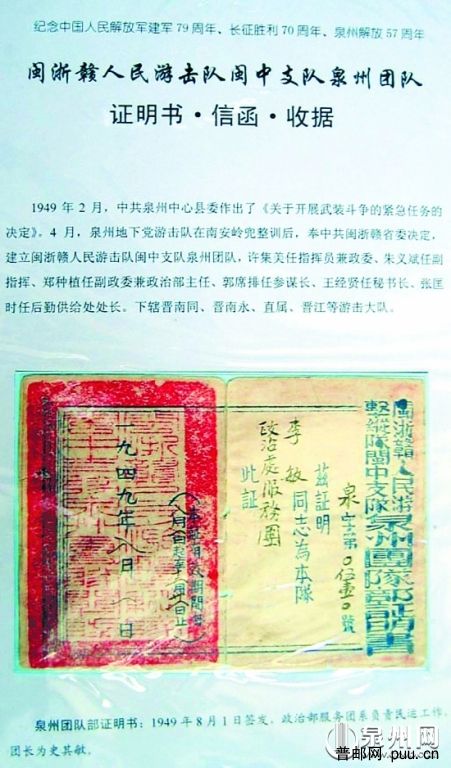 纪念中国人民解放军建军79周年、长征胜利70周年、泉州解放57周年
闽浙赣人民游击队闽中支队泉州团队
证明书·信函·收据
1949 年 2 月，中共泉州中心县委作出了《关于开展武装斗争的紧急任务的
决定》。4 月，泉州地下党游击队在南安岭兜整训后，奉中共闽浙赣省委决定，
建立闽浙赣人民游击队闽中支队泉州团队，许集美任指挥员兼政委、朱义斌任副
指挥、郑种植任副政委兼政治部主任、郭席排任参谋长、王经贤任秘书长、张匡
时任后勤供给处处长。下辖晋南同、晋南永、直属、晋江等游击大队。
閩浙贛人民游
擊縱隊閩中支隊泉州團隊部証明書
泉字第0伍壹0號
茲証明
李敏同志為本隊
政治處服務團
此証
一九四九年八月一日
泉州团队部证明书：1949 年 8 月 1 日签发，政治部服务团系负责民运工作，
团长为史其敏。
泉州网
普邮网 puu.cn